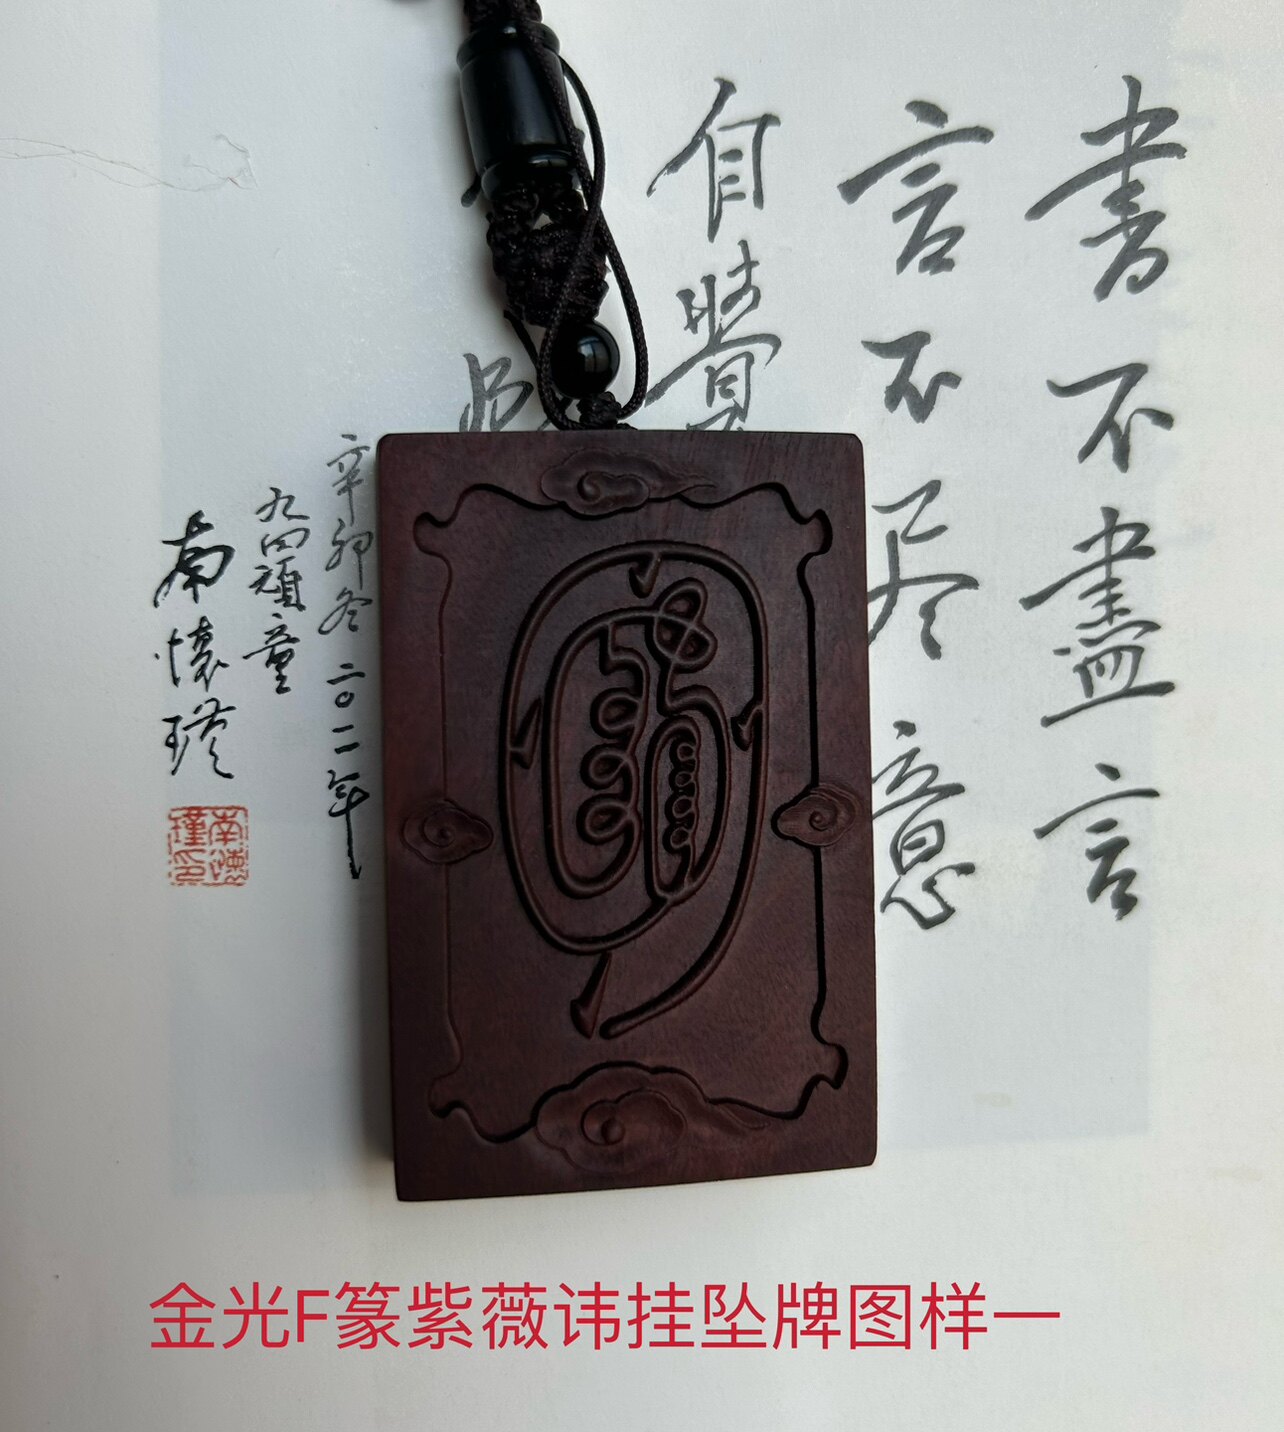 書不盡言
言不尽意
自覺
辛卯冬二〇一一年
九四頑童
南懷瑾
南懷瑾印
金光F篆紫薇讳挂坠牌图样一